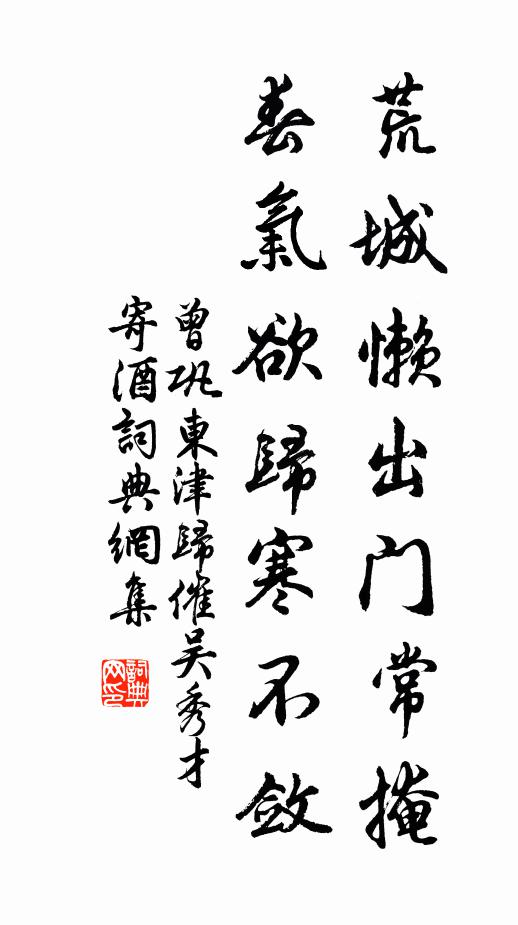 荒城懶出門常掩
春氣欲歸寒不斂
曾鞏東津歸催吳秀才
寄酒詞典網集
詞典
网印